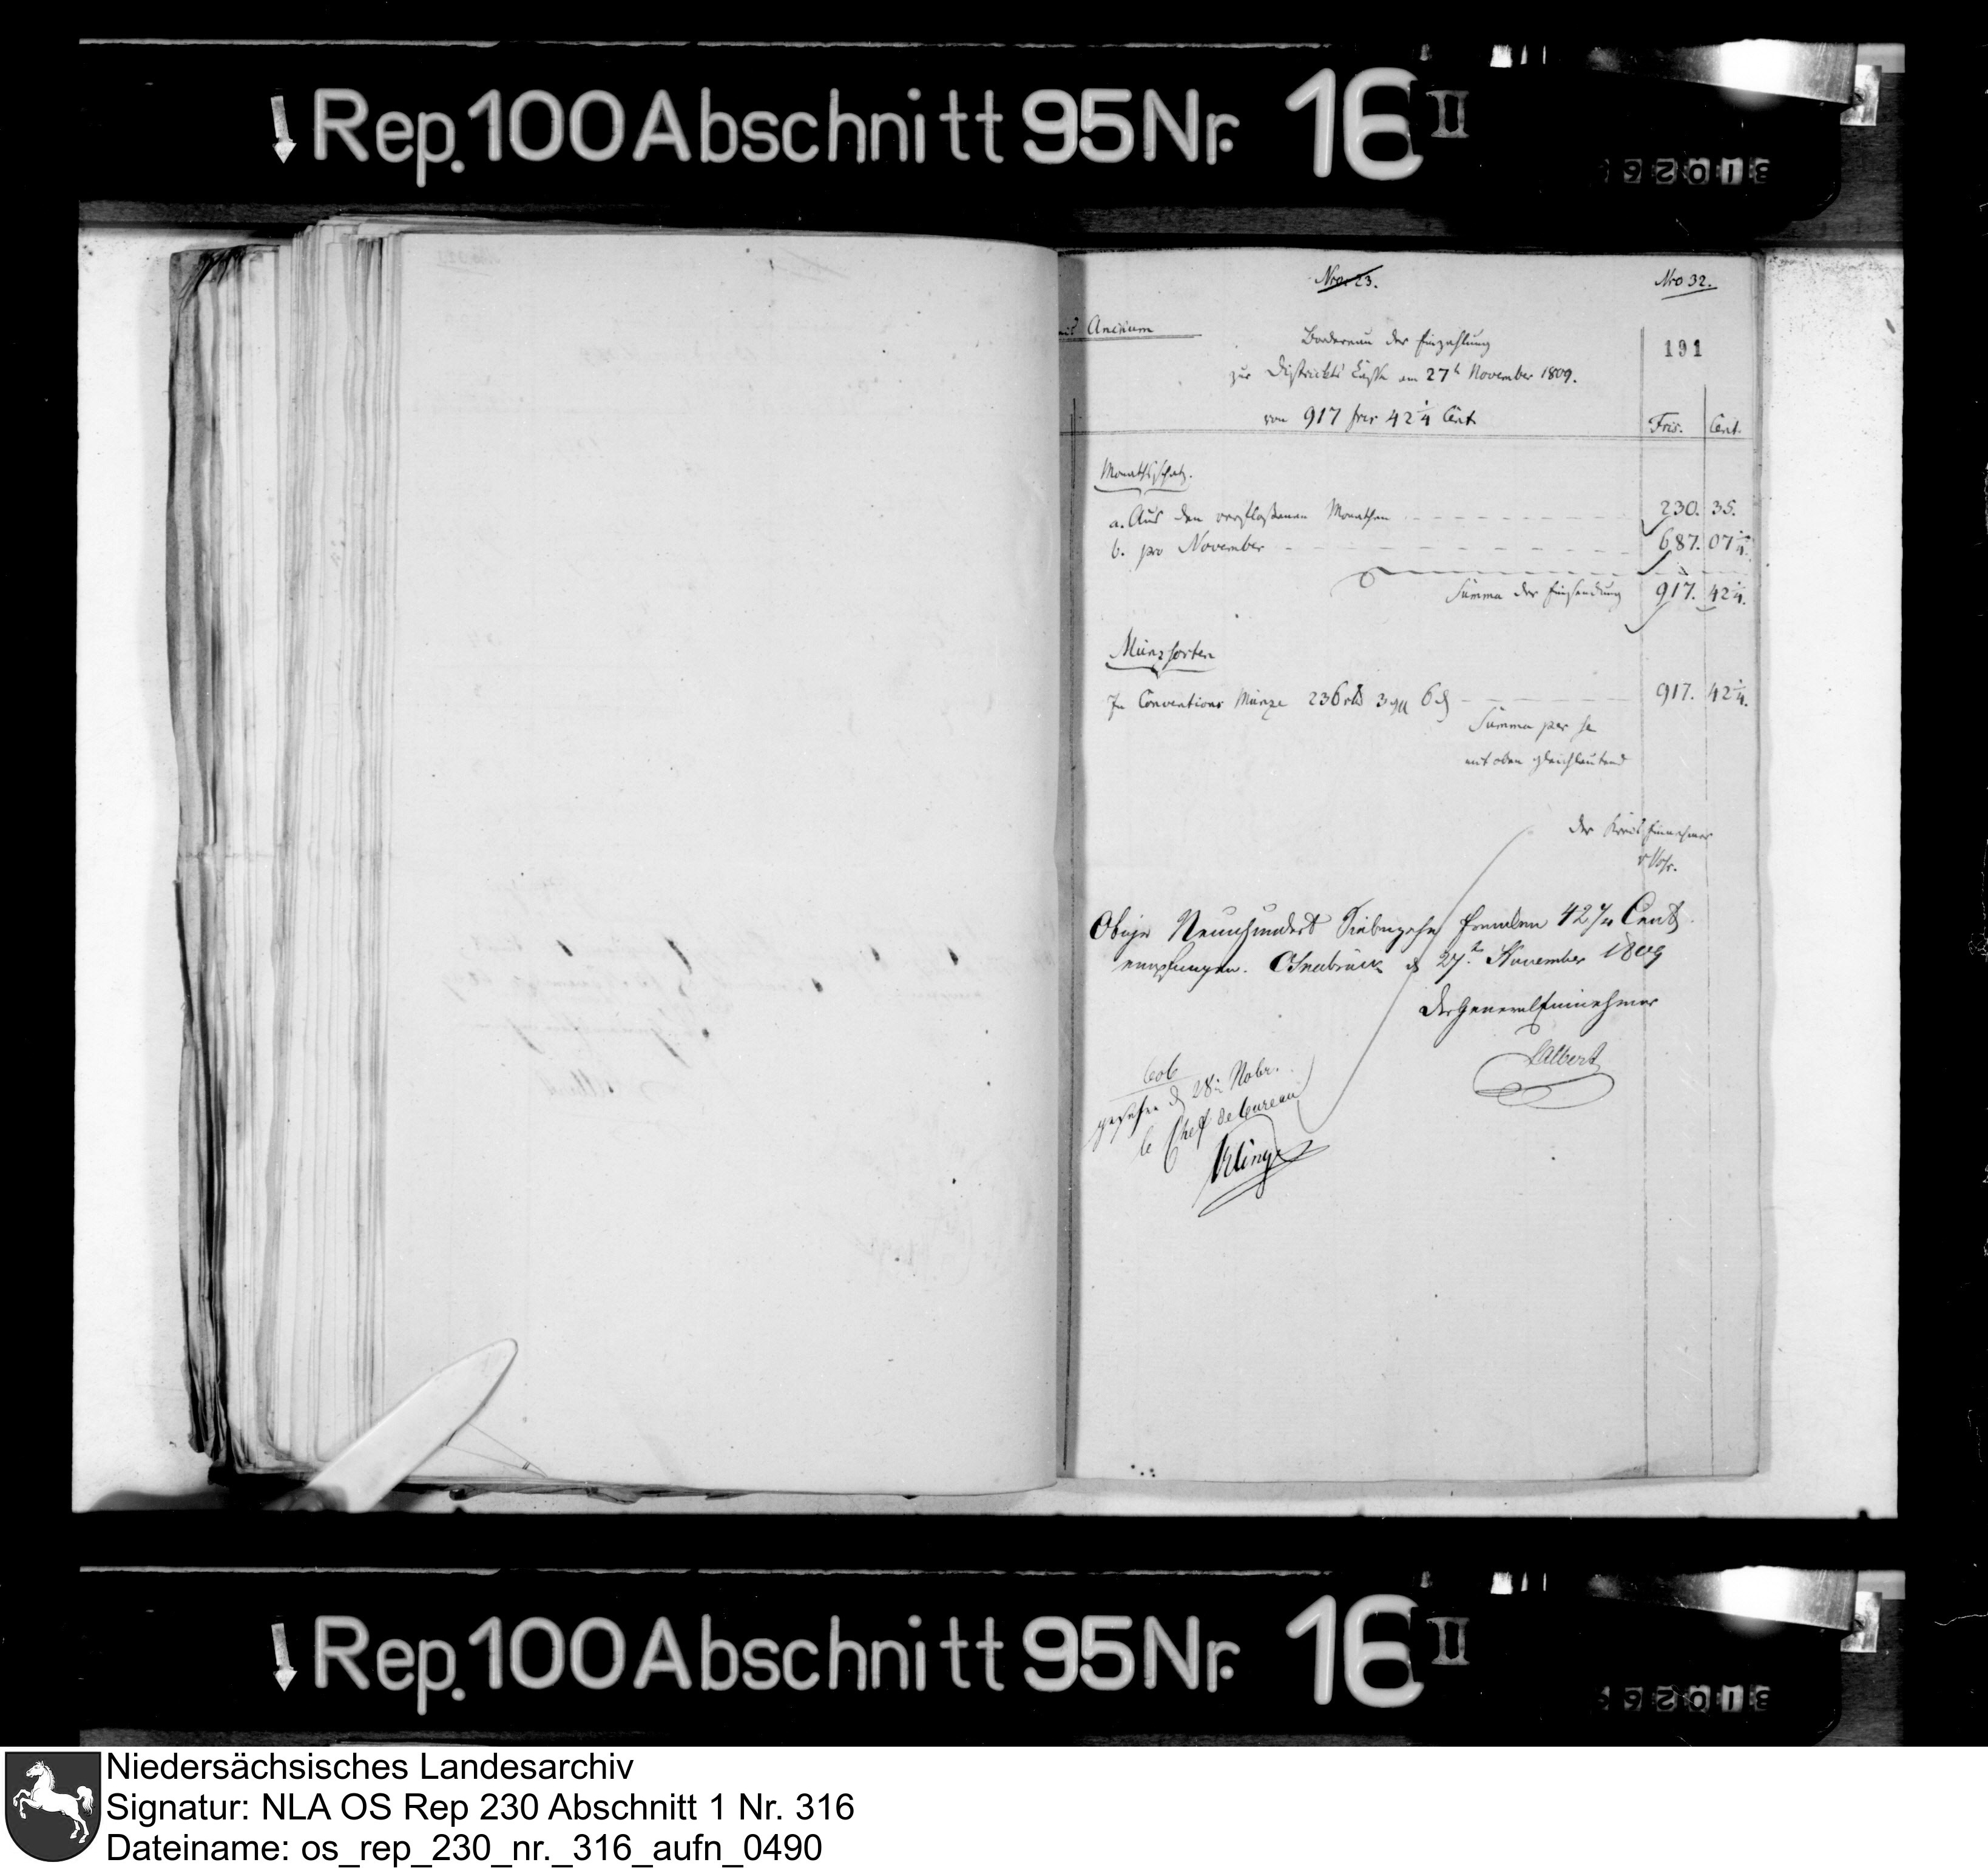 Rep. 100 Abschnitt 95 Nr. 16 II
310262
Nro. 23.
Nro 32.
Ancum
191
Bordereau der Einzahlung
zur Districkts Casse am 27t November 1809.
von 917 frcs 42 1/4 Cent
Frcs. Cent.
Monathsschatz.
a. Aus den verfloßenen Monathen 230. 35.
b. pro November 687. 07 1/4.
Summa der Einsendung 917. 42 1/4.
Münzsorten
In Conventions Münze 236 rth 3 ggl 6 d 917. 42 1/4.
Summa per se
mit oben gleichlautend
Der Kreis Einnehmer
Obige Neunhundert Siebenzehn Franken 42 1/4 Cent
empfangen. Osnabrück d 27ten November 1809
Der General Einnehmer
Albert
gesehen d 28t Nobr.
le Chef de bureau
Rep. 100 Abschnitt 95 Nr. 16 II
310262
Niedersächsisches Landesarchiv
Signatur: NLA OS Rep 230 Abschnitt 1 Nr. 316
Dateiname: os_rep_230_nr._316_aufn_0490